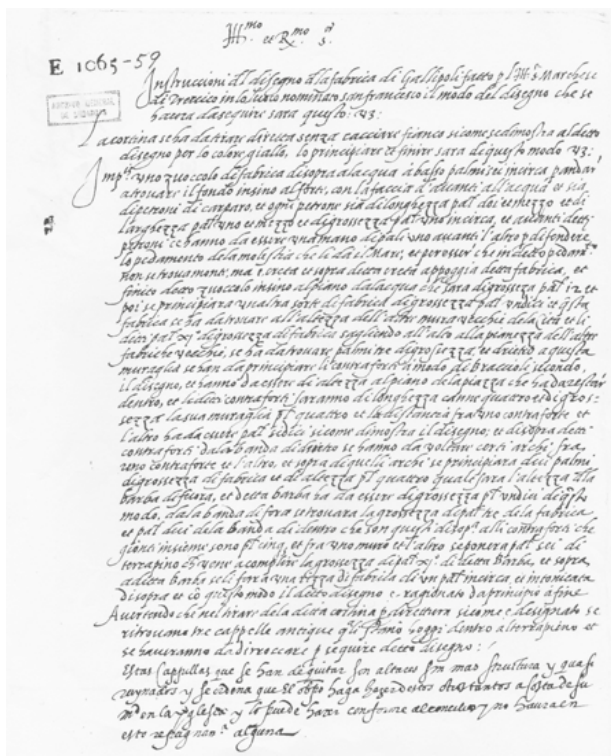 Ill.mo et R.mo s.or
E 1065-59
Instruccioni dil disegno dla fabrica di Gallipoli facto p l Ill. S. Marchese
di Trevico in lo luoco nominato san francesco il modo del disegno che se
havera da sequire sara questo: v3:
La cortina se ha da tirare directa senza cacciare fianco si come se dimostra al decto
disegno per lo colore giallo, lo principiare et finire sara di questo modo v3:
Imp.s uno zuoccolo di fabrica di sopra al acqua a basso palmi sei incirca p andar
a trovare il fondo insino al forte, con la faccia d'avanti all'acqua et sia
di petroni di carparo, et ogni petrone sia di longhezza pal. doi e mezzo et di
larghezza pal. uno et mezzo et di grossezza pal. uno incirca, et avanti decti
petroni ce hanno da essere una mano di pali uno avanti l'altro p difendere
lo pedamento dela molestia che li da il Mare, et per esser che in decto pedam.to
non se trova monte, ma e creta et sopra decta creta appoggia decta fabrica, et
finito decto zuoccolo insino al piano dal acqua che sara di grosseza pal. 12 et
poi se principiara un altra sorte di fabrica di grossezza pal. undici et q.sta
fabrica ce ha da trovare all'altezza dell'altre mura vecchie dela cita et li
decti pal. xj di grossezza di fabrica sagliendo all'alto alla pianezza dell'altre
fabriche vecchie, se ha da trovare palmi tre di grossezza, et drieto a questa
muraglia se han da principiare li contraforti a modo di Braccioli secondo
il disegno, et hanno da essere di altezza al piano dela piazza che ha da restar
dentro, et li decti contraforti saranno di longhezza canne quattro et di gros-
sezza la sua muraglia pal. quattro et la distantia fra uno contraforte et
l'altro ha da essere pal. sidici si come dimostra il disegno; et di sopra decti
contraforti dala banda di dentro se hanno da voltare certi archi fra
uno contraforte et l'altro, et sopra di quelli archi se principiara dui palmi
di grossezza di fabrica et di altezza pal. quattro quale sara l'altezza alla
barba di fuora, et decta barba ha da essere di grossezza pal. undici di q.sto
modo, dala banda di fora se trovara la grossezza di pal. tre de la fabrica
et pal. dui dela banda di dentro che son questi di sop.a alli contraforti che
gionti insieme sono pal. cinq. et fra uno muro et l'altro se ponera pal. sei di
terrapino che vene a complire la grossezza di pal. xj. di decta barba, et sopra
a decta barba se li fara una tezza di fabrica di un pal. incirca, et intonicata
di sopra et cō questo modo il decto disegno e ragionato da principio a fine
Avertendo che nel tirare dela dicta cortina p direttura si come e designato se
ritrovano tre cappelle antique q.li stāno hoggi dentro al terrapino et
se haveranno da dirroccare p sequire decto disegno:
Estas Cappillas que se han de quitar son altares sin mas structura y quasi
ruynados y se ordena que el obpo haga hazer de stos otros tantos a costa de su
m.d en la yglesia y lo puede hazer conforme al concilio y no haura en
esto repugnan.a alguna